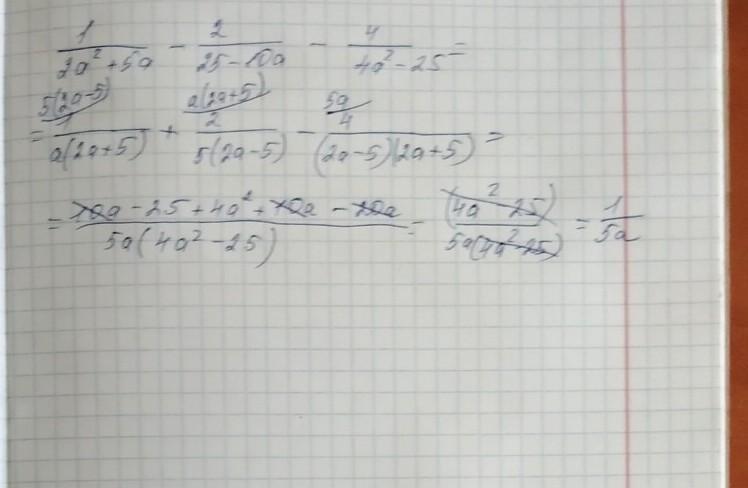 1/(2a²+5a) - 2/(25-10a) - 4/(4a²-25) =
5(2a-5) a(2a+5) 5a
= 1/(a(2a+5)) + 2/(5(2a-5)) - 4/((2a-5)(2a+5)) =
= (10a-25+4a²+10a-20a)/(5a(4a²-25)) = (4a²-25)/(5a(4a²-25)) = 1/(5a)